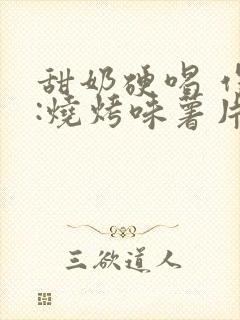 甜奶硬唱
:燒烤味薯片
三欲道人